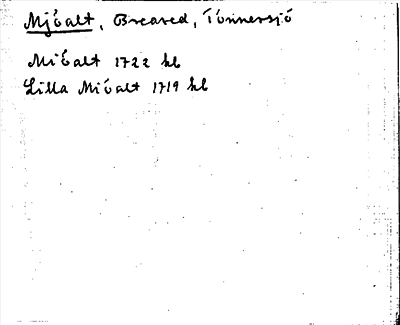 Mjöalt, Breared, Tönnersjö
Miöalt 1722 kb
Lilla Miöalt 1719 kb